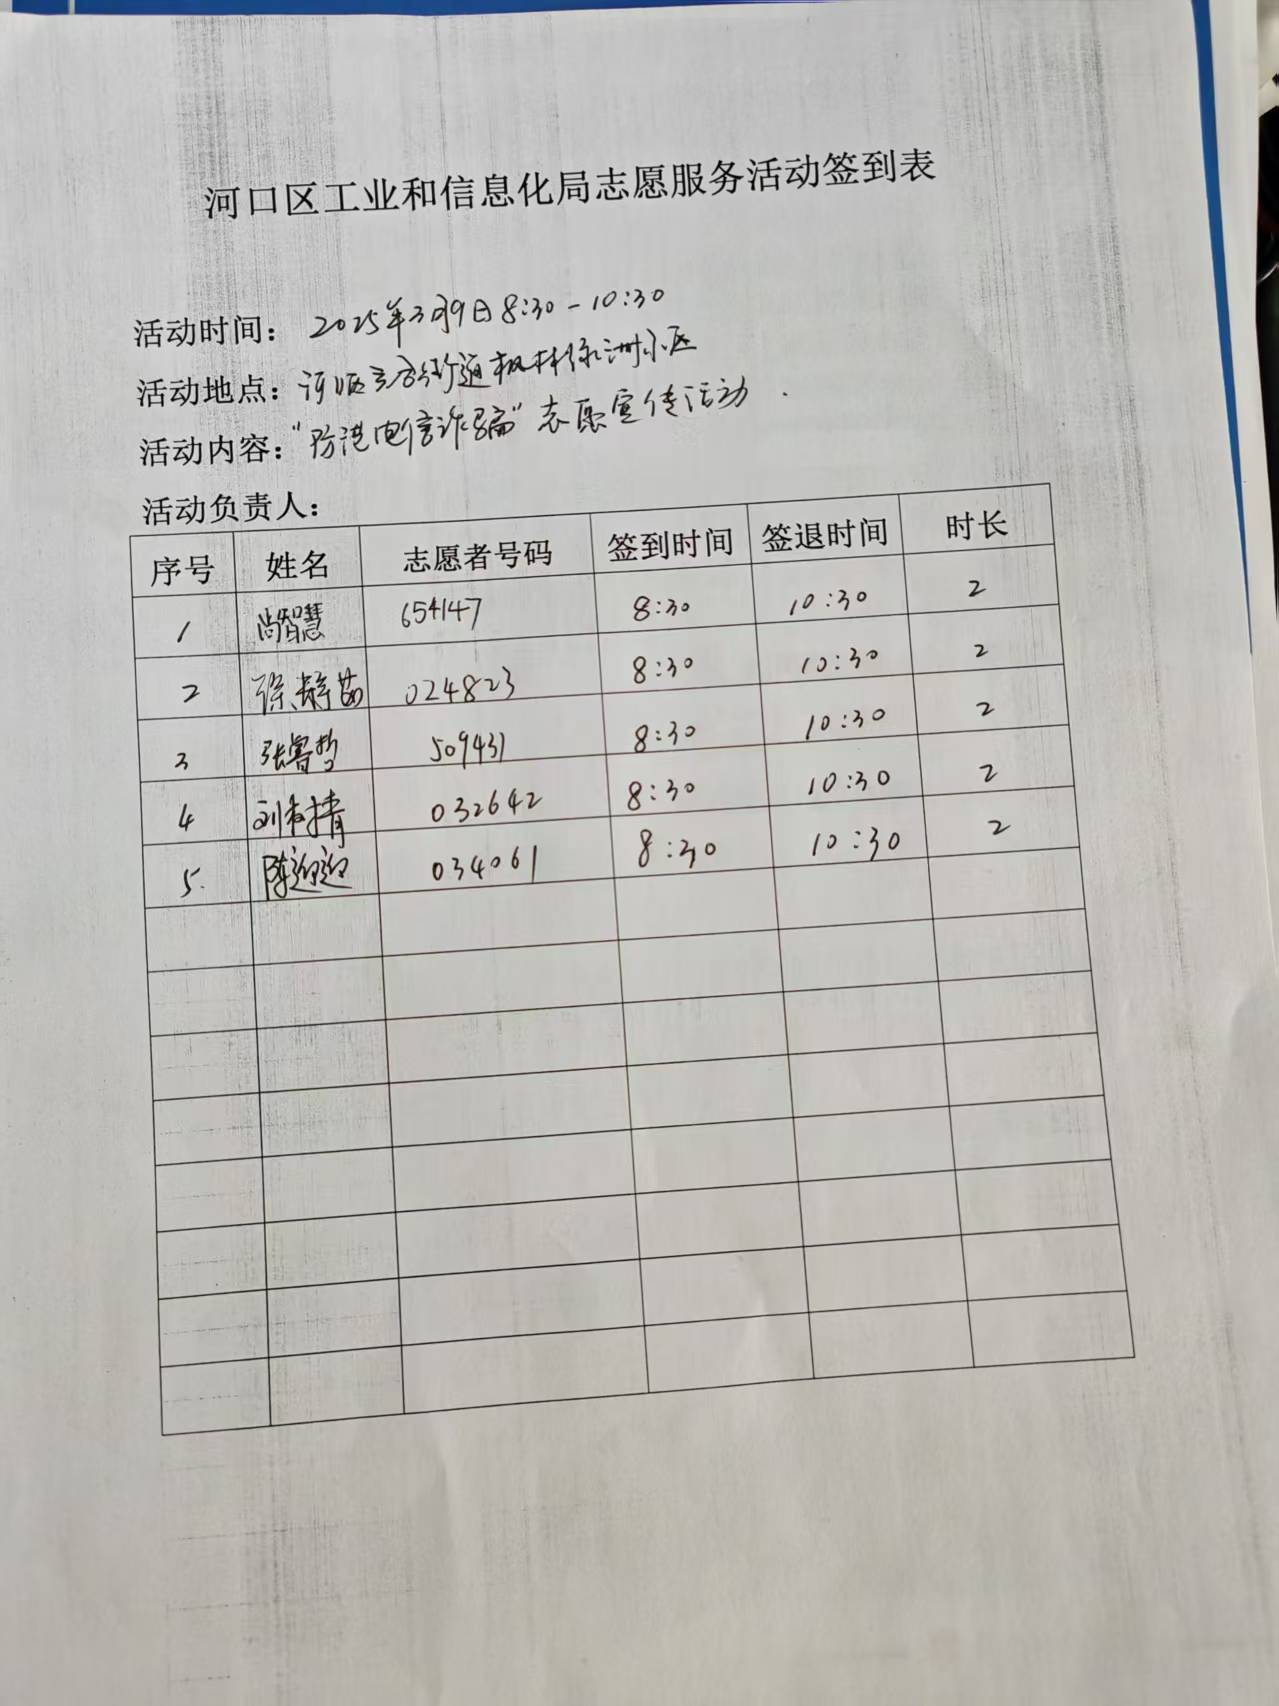 河口区工业和信息化局志愿服务活动签到表
活动时间： 2025年3月9日 8:30-10:30
活动地点： 河口区 街道枫林绿洲小区
活动内容：“防范电信诈骗”志愿宣传活动.
活动负责人：
序号 姓名 志愿者号码 签到时间 签退时间 时长
1 尚智慧 654147 8:30 10:30 2
2 徐静茹 024823 8:30 10:30 2
3 张鲁哲 509431 8:30 10:30 2
4 刘 032642 8:30 10:30 2
5. 陈迎迎 034061 8:30 10:30 2